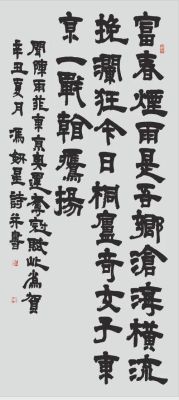 富春煙雨是吾鄉滄海橫流
挽瀾狂今日桐廬奇女子東
京一戰翰鷹揚
聞陳雨菲東京奧運奪冠賦此為賀
辛丑夏月馮星詩并書